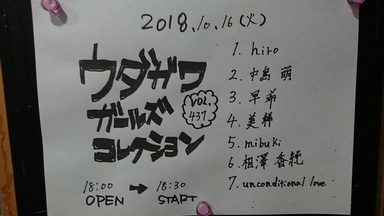 2018.10.16(火)
ウダガワ
ガールズ
コレクション
VOL.
437
18:00 → 18:30
OPEN START
1. hiro
2. 中島 萌
3. 早希
4. 美稀
5. mibuki
6. 相澤 香純
7. unconditional love